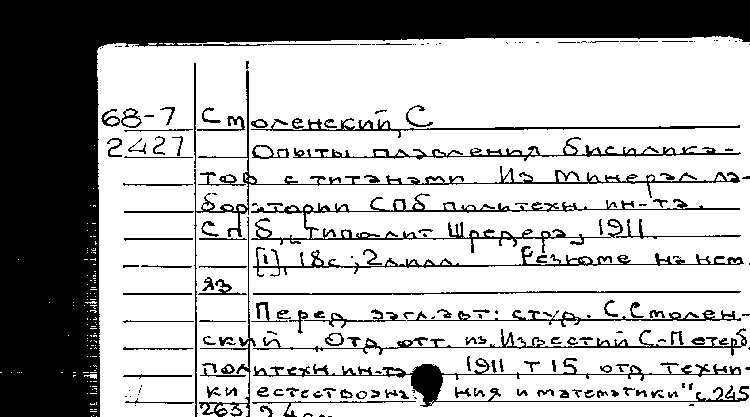 68-7 Смоленский, С
2427 Опыты плавления бисилика-
тов с титанами. Из минерал ла-
боратории СПб политехн. ин-та.
СПб, „Типолит Шредера„ 1911.
[1], 18с ; 2л илл. Резюме на нем.
яз
Перед загл. авт: студ. С. Смолен-
ский. „Отд отт. из. Известий С-Петерб.
политехн. ин-та, 1911, т 15, отд. техни-
ки, естествозна ния и математики" с. 245
263 24см